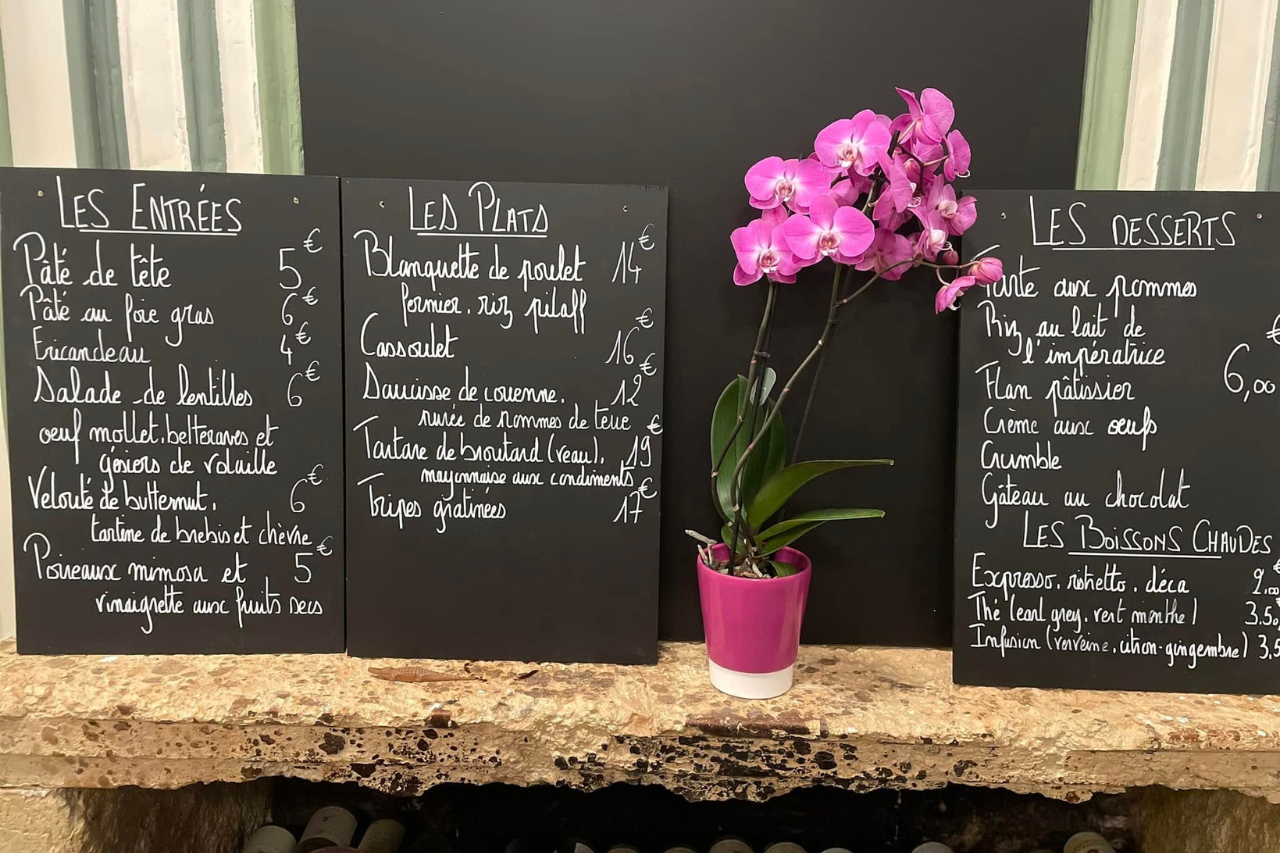 LES ENTRÉES
Pâté de tête 5€
Pâté au foie gras 6€
Fricandeau 4€
Salade de lentilles 6€
oeuf mollet, betteraves et
gésiers de volaille
Velouté de butternut, 6€
tartine de brebis et chèvre
Poireaux mimosa et 5€
vinaigrette aux fruits secs
LES PLATS
Blanquette de poulet 14€
fermier, riz pilaff
Cassoulet 16€
Saucisse de couenne, 12€
purée de pommes de terre
Tartare de broutard (veau), 19€
mayonnaise aux condiments
Tripes gratinées 17€
LES DESSERTS
Tarte aux pommes
Riz au lait de
l'impératrice
6,00€
Flan pâtissier
Crème aux oeufs
Crumble
Gâteau au chocolat
LES BOISSONS CHAUDES
Expresso, ristretto, déca 2,00€
Thé (earl grey, vert menthe) 3.50
Infusion (verveine, citron-gingembre) 3,5